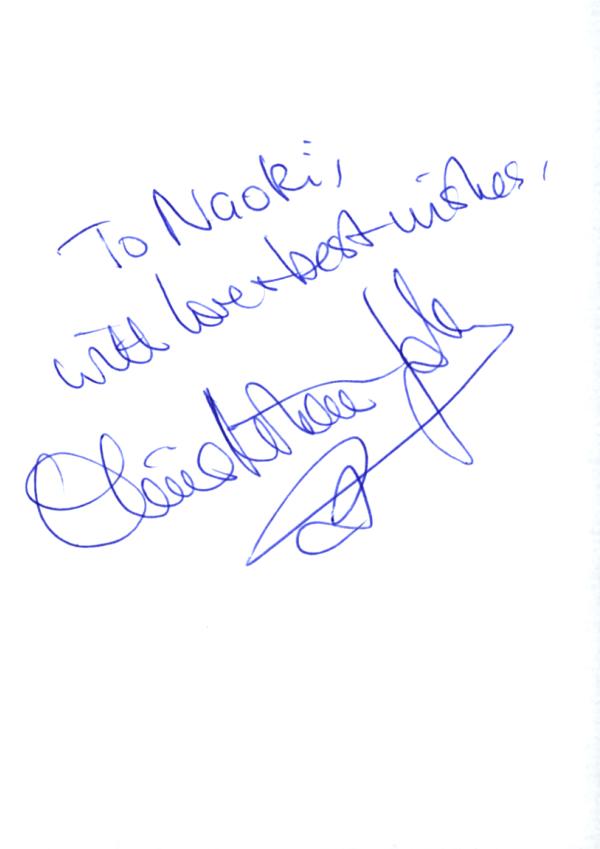 To Naoki,
with love + best wishes,